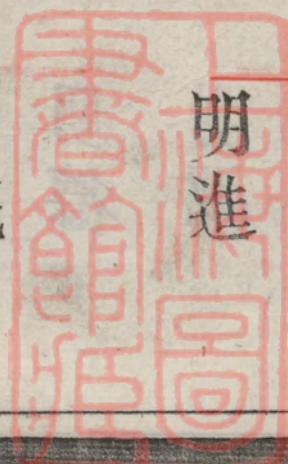 明進
上海圖
書館藏